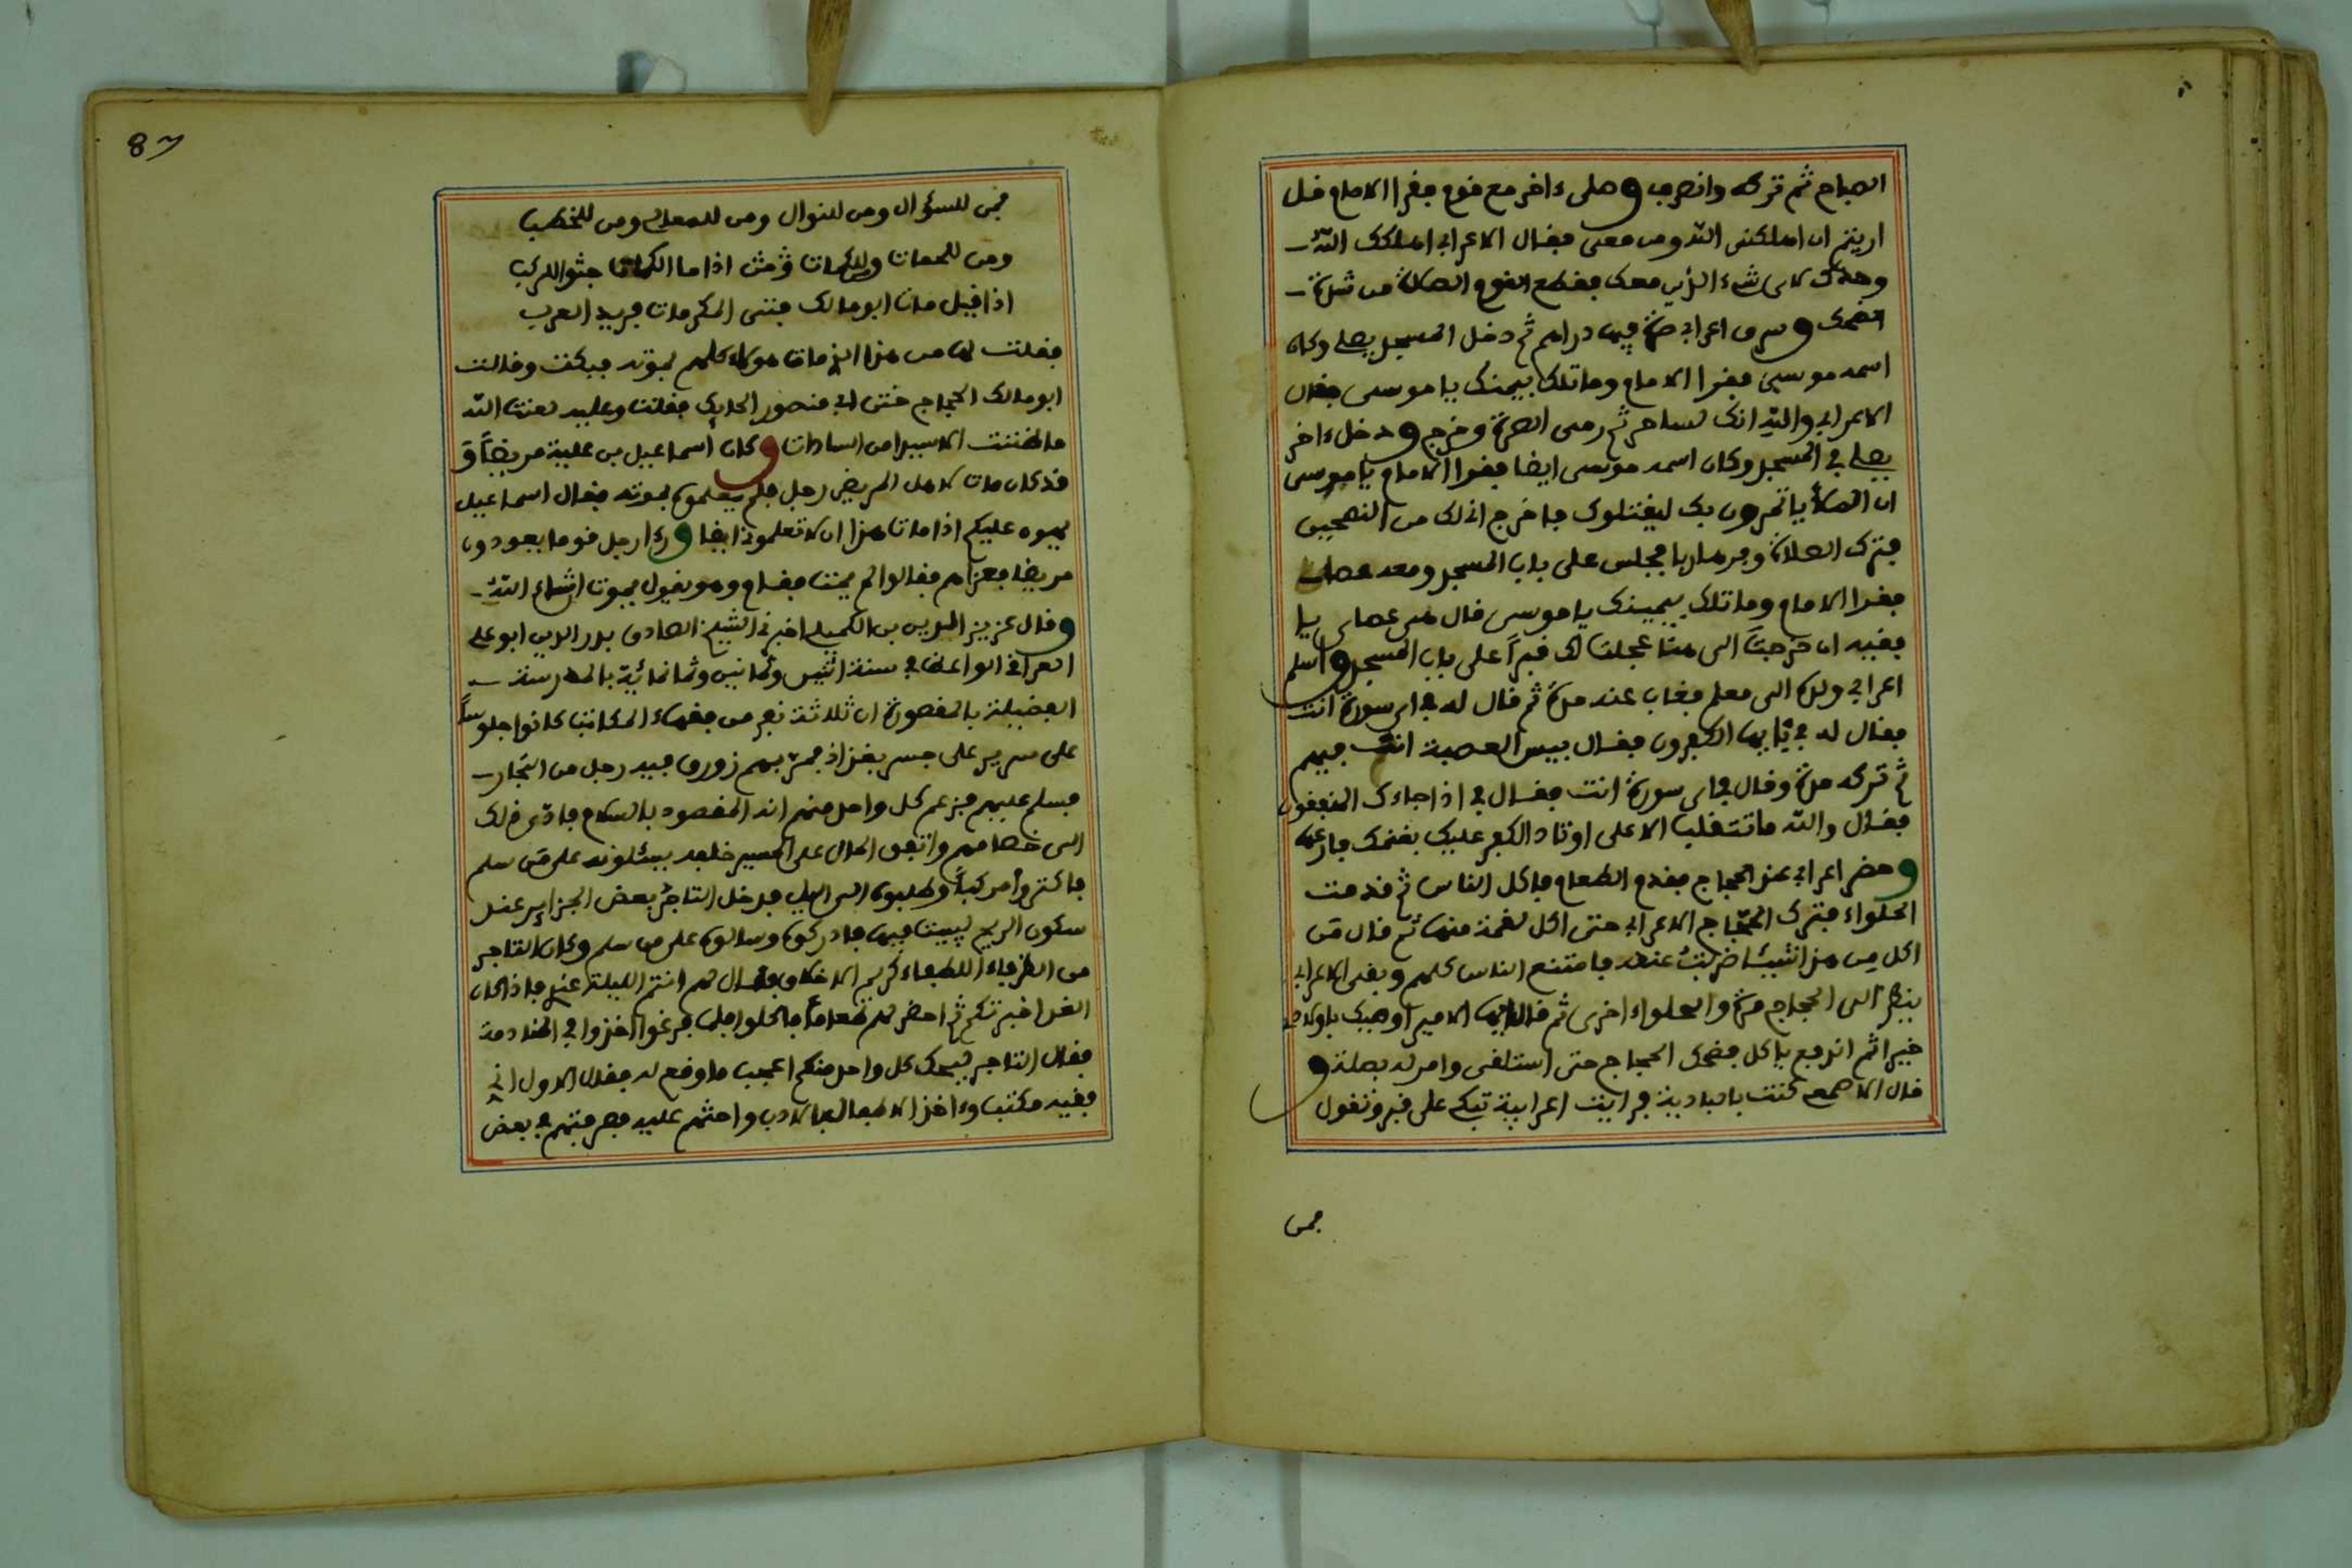 الصباح ثم تركه وانصرف وصلى ءاخر مع قوم فقرا الامام قل
اريتم ان اهلكني الله ومن معي فقال الاعرابي اهلكك الله
وحدك لاى شىء الذين معك فقطع القوم الصلاة من شدة
الضحك وسرق اعرابي صرة فيها دراهم ثم دخل المسجد يصلي وكان
اسمه موسى فقرا الامام وما تلك بيمينك يا موسى فقال
الاعرابي والله انك لساحر ثم رمى الصرة وخرج ودخل ءاخر
يصلي في المسجد وكان اسمه موسى ايضا فقرا الامام يا موسى
ان الملأ ياتمرون بك ليقتلوك فاخرج اني لك من النصحين
فترك الصلاة وفر هاربا فجلس على باب المسجد ومعه عصاه
فقرا الامام وما تلك بيمينك يا موسى قال هي عصاى يا
فقيه ان خرجت الى هنا عجلت لك قبرا على باب المسجد واسلم
اعرابي ولده الى معلم فغاب عنه مدة ثم قال له في اى سورة انت
فقال له في يايها الكفرون فقال بيس العصبة انت فيهم
ثم تركه مدة وقال في اى سورة انت فقال في اذا جاءك المنفقون
فقال والله ما تتقلب الا على اوتاد الكفر عليك بغنمك فارعها
وحضر اعرابي عند الحجاج فقدم الطعام فاكل الناس ثم قدمت
الحلواء فترك الحجاج الاعرابي حتى اكل لقمة منها ثم قال من
اكل من هذا شيئا ضربت عنقه فامتنع الناس كلهم وبقى الاعرابي
ينظر الى الحجاج مرة والحلواء اخرى ثم قال ايها الامير اوصيك باولادي
خيرا ثم اندفع ياكل فضحك الحجاج حتى استلقى وامر له بصلة و
قال الاصمعي كنت بالبادية فرايت اعرابية تبكي على قبر وتقول
فمن
8
فمن للسؤال ومن للنوال ومن للمعالي ومن للخطب
ومن للحمات ومن للكمات اذا ما الكمات جثوا للركب
اذا قيل مات ابو مالك فتى المكرمات فريد العرب
فقلت لها من هذا الذى مات هولاء كلهم بموته فبكت وقالت
ابو مالك الحجاج ختن ابي منصور الحايك فقلت وعليه لعنت الله
ما ظننت الا سيدا من السادات وكان اسماعيل بن علية مريضا و
قد كان مات لاهل المريض رجل فلم يعلموه بموته فقال اسماعيل
عليكم اذا مات هذا ان لا تعلموني ايضا وزار رجل قوما يعودون
مريضا فعزاهم فقالوا لم يمت فقام وهو يقول يموت ان شاء الله
وقال عزيز الدين بن اخبرني الشيخ الصادق بدر الدين ابو علي
العراقي الواعظ في سنة اثنين وثمانين وثمانمائية بالمدرسة
الفضيلة بالمقصورة ان ثلاثة نفر من فقهاء المكاتب كانوا جلوسا
على سرير على جسر بغداد فمر بهم زورق فيه رجل من التجار
فسلم عليهم فزعم كل واحد منهم انه المقصود بالسلام فادى ذلك
الى خصامهم واتفق الحال على المسير خلفه يسئلونه على من سلم
فاكتروا مركبا وطلبوه الى الليل فدخل التاجر بعض الجزاير عند
سكون الريح ليبيت فيها فادركوه وسالوه على من سلم وكان التاجر
من الظرفاء اللطفاء كريم الاخلاق فقال لهم انتم الليلة عندى فاذا كان
الغد اخبرتكم ثم احضر لهم طعاما فاكلوا فلما فرغوا اخذوا في المنادمة
فقال التاجر ليحك كل واحد منكم اعجب ما وقع له فقال الاول اني
فقيه مكتب واخذ الاطفال بالادب واحثهم عليه فصرفتهم في بعض